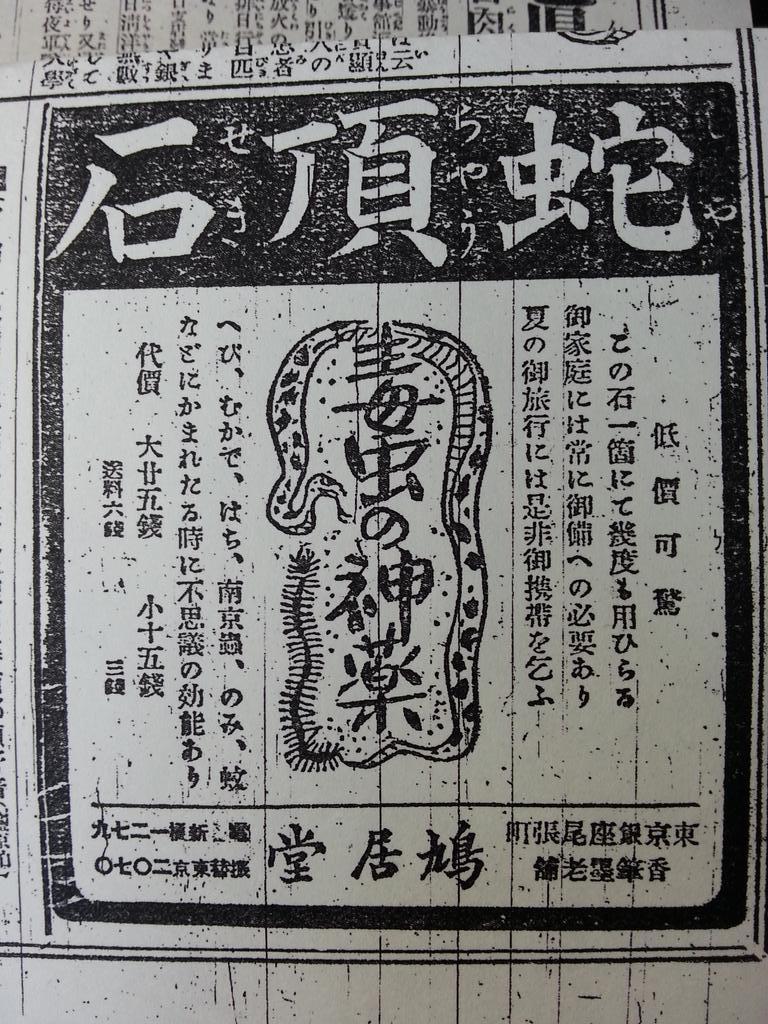 蛇頂石
しやちやうせき
低價可驚
この石一箇にて幾度も用ひらる
御家庭には常に御備への必要あり
夏の御旅行には是非御携帶を乞ふ
毒虫の神薬
へび、むかで、はち、南京蟲、のみ、蚊
などにかまれたる時に不思議の効能あり
代價 大廿五錢 小十五錢
送料六錢 三錢
東京銀座尾張町
香筆墨老舗
鳩居堂
電新橋一二七九
振替東京二〇七〇